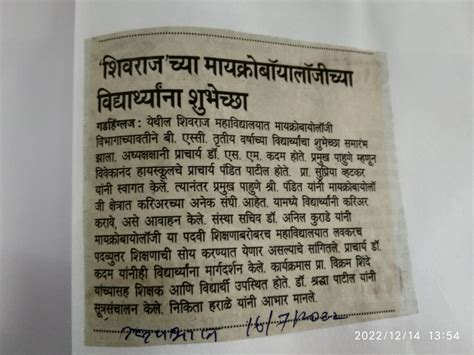 'शिवराज'च्या मायक्रोबॉयालॉजीच्या
विद्यार्थ्यांना शुभेच्छा
गडहिंग्लज : येथील शिवराज महाविद्यालयात मायक्रोबायोलॉजी
विभागाच्यावतीने बी. एस्सी. तृतीय वर्षाच्या विद्यार्थ्यांचा शुभेच्छा समारंभ
झाला. अध्यक्षक्षानी प्राचार्य डॉ. एस. एम. कदम होते. प्रमुख पाहुणे म्हणून
विवेकानंद हायस्कूलचे प्राचार्य पंडित पाटील होते. प्रा. सुप्रिया व्हटकर
यांनी स्वागत केले. त्यानंतर प्रमुख पाहुणे श्री. पंडित यांनी मायक्रोबायोलॉ
जी क्षेत्रात करिअरच्या अनेक संधी आहेत. यामध्ये विद्यार्थ्यांनी करिअर
करावे, असे आवाहन केले. संस्था सचिव डॉ. अनिल कुराडे यांनी
मायक्रोबायोलॉजी या पदवी शिक्षणाबरोबरच महाविद्यालयात लवकरच
पदव्युत्तर शिक्षणाची सोय करण्यात येणार असल्याचे सांगितले. प्राचार्य डॉ.
कदम यांनीही विद्यार्थ्यांना मार्गदर्शन केले. कार्यक्रमास प्रा. विक्रम शिंदे
यांच्यासह शिक्षक आणि विद्यार्थी उपस्थित होते. डॉ. श्रद्धा पाटील यांनी
सूत्रसंचालन केले. निकिता हराळे यांनी आभार मानले.
16/7/2022
2022/12/14 13:54